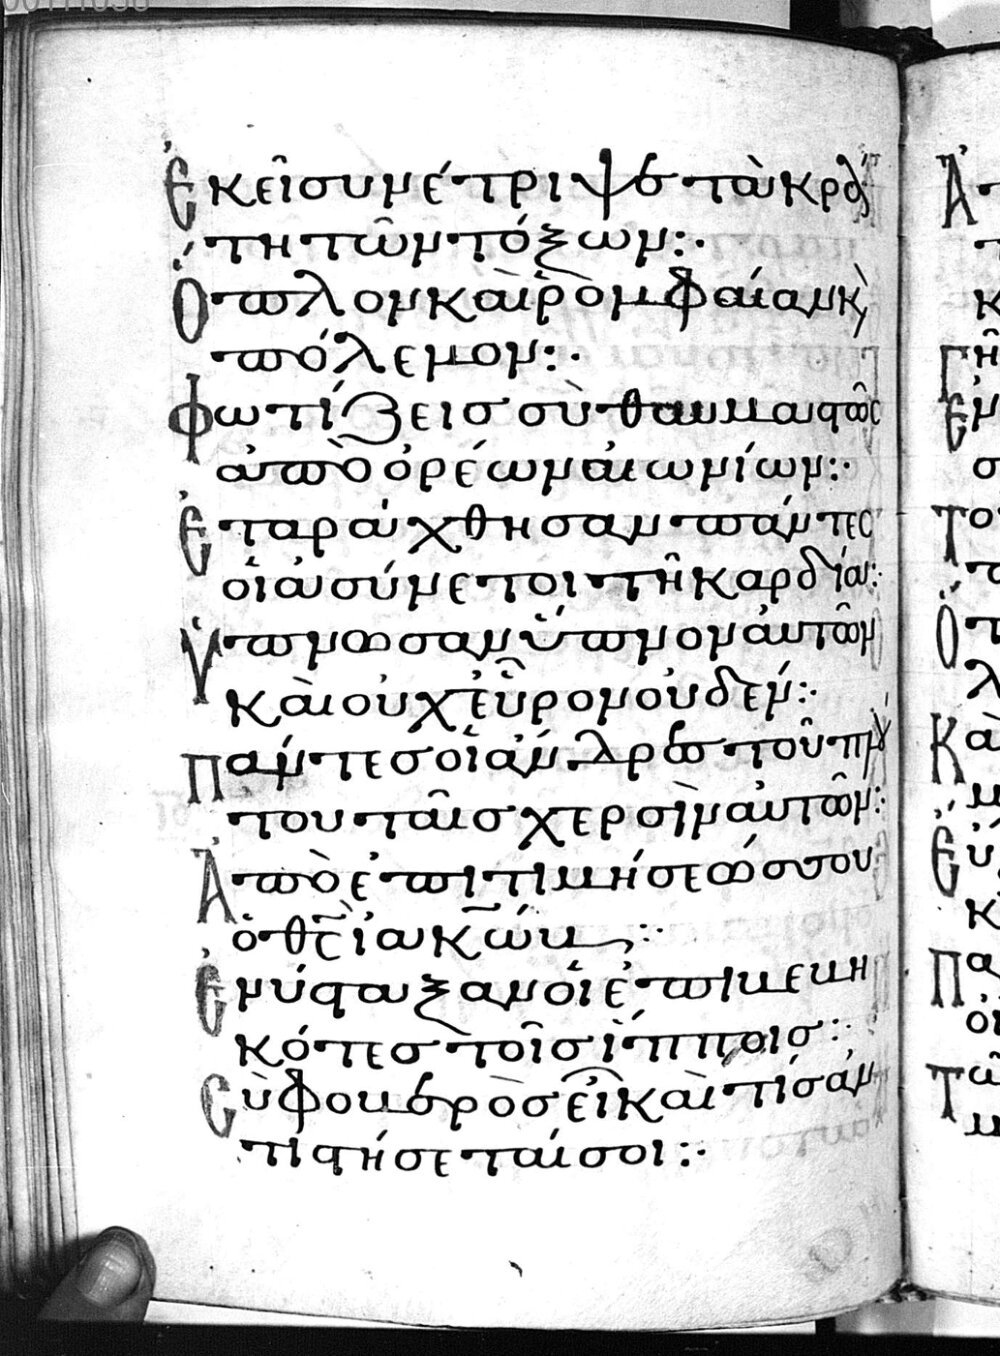 Ἐκεῖ συνέτριψε τὰ κρά
τη τῶν τόξων:·
Ὅπλον καὶ ῥομφαίαν κ(αὶ)
πόλεμον:·
Φωτίζεις σὺ θαυμαστῶς
ἀπὸ ὀρέων αἰωνίων:·
Ἐταράχθησαν πάντες
οἱ ἀσύνετοι τῆ καρδία:·
Ὕπνωσαν ὕπνον αὐτῶν
καὶ οὐχ εὗρον οὐδέν:·
Πάντες οἱ ἄνδρες τοῦ πλού
του ταῖς χερσὶν αὐτῶν:·
Ἀπὸ ἐπιτιμήσεώς σου
ὁ θς ἰακώβ:·
Ἐνύσταξαν οἱ ἐπιβεβη
κότες τοῖς ἵπποις:·
Σὺ φοβερὸς εἶ καὶ τίς ἀν
τιστήσεταί σοι:·